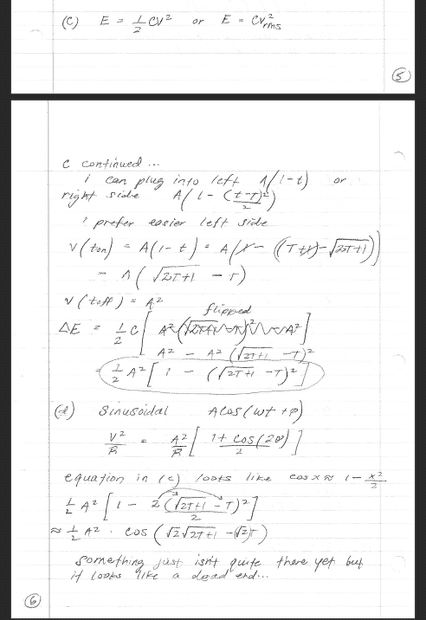 (c) E = 1/2 CV² or E = CV²rms
5
c continued...
i can plug into left A(1-t) or
right side A(1 - (t-T)²/2)
i prefer easier left side
V(ton) = A(1-t) = A(1 - ((T+1) - √(2T+1)))
= A(√(2T+1) - T)
V(toff) = A²
flipped
ΔE = 1/2 C[A²(√(2T+1) - T)² - A²]
A² - A²(√(2T+1) - T)²
= 1/2 A²[1 - (√(2T+1) - T)²]
(d) Sinusoidal Acos(wt + φ)
V²/R = A²/R [1 + cos(2φ)/2]
equation in (c) looks like cos x ≈ 1 - x²/2
1/2 A² [1 - 2(√(2T+1) - T)²/2]
≈ 1/2 A² · cos(√2√(2T+1) - √2T)
something just isn't quite there yet but
it looks like a dead end...
6